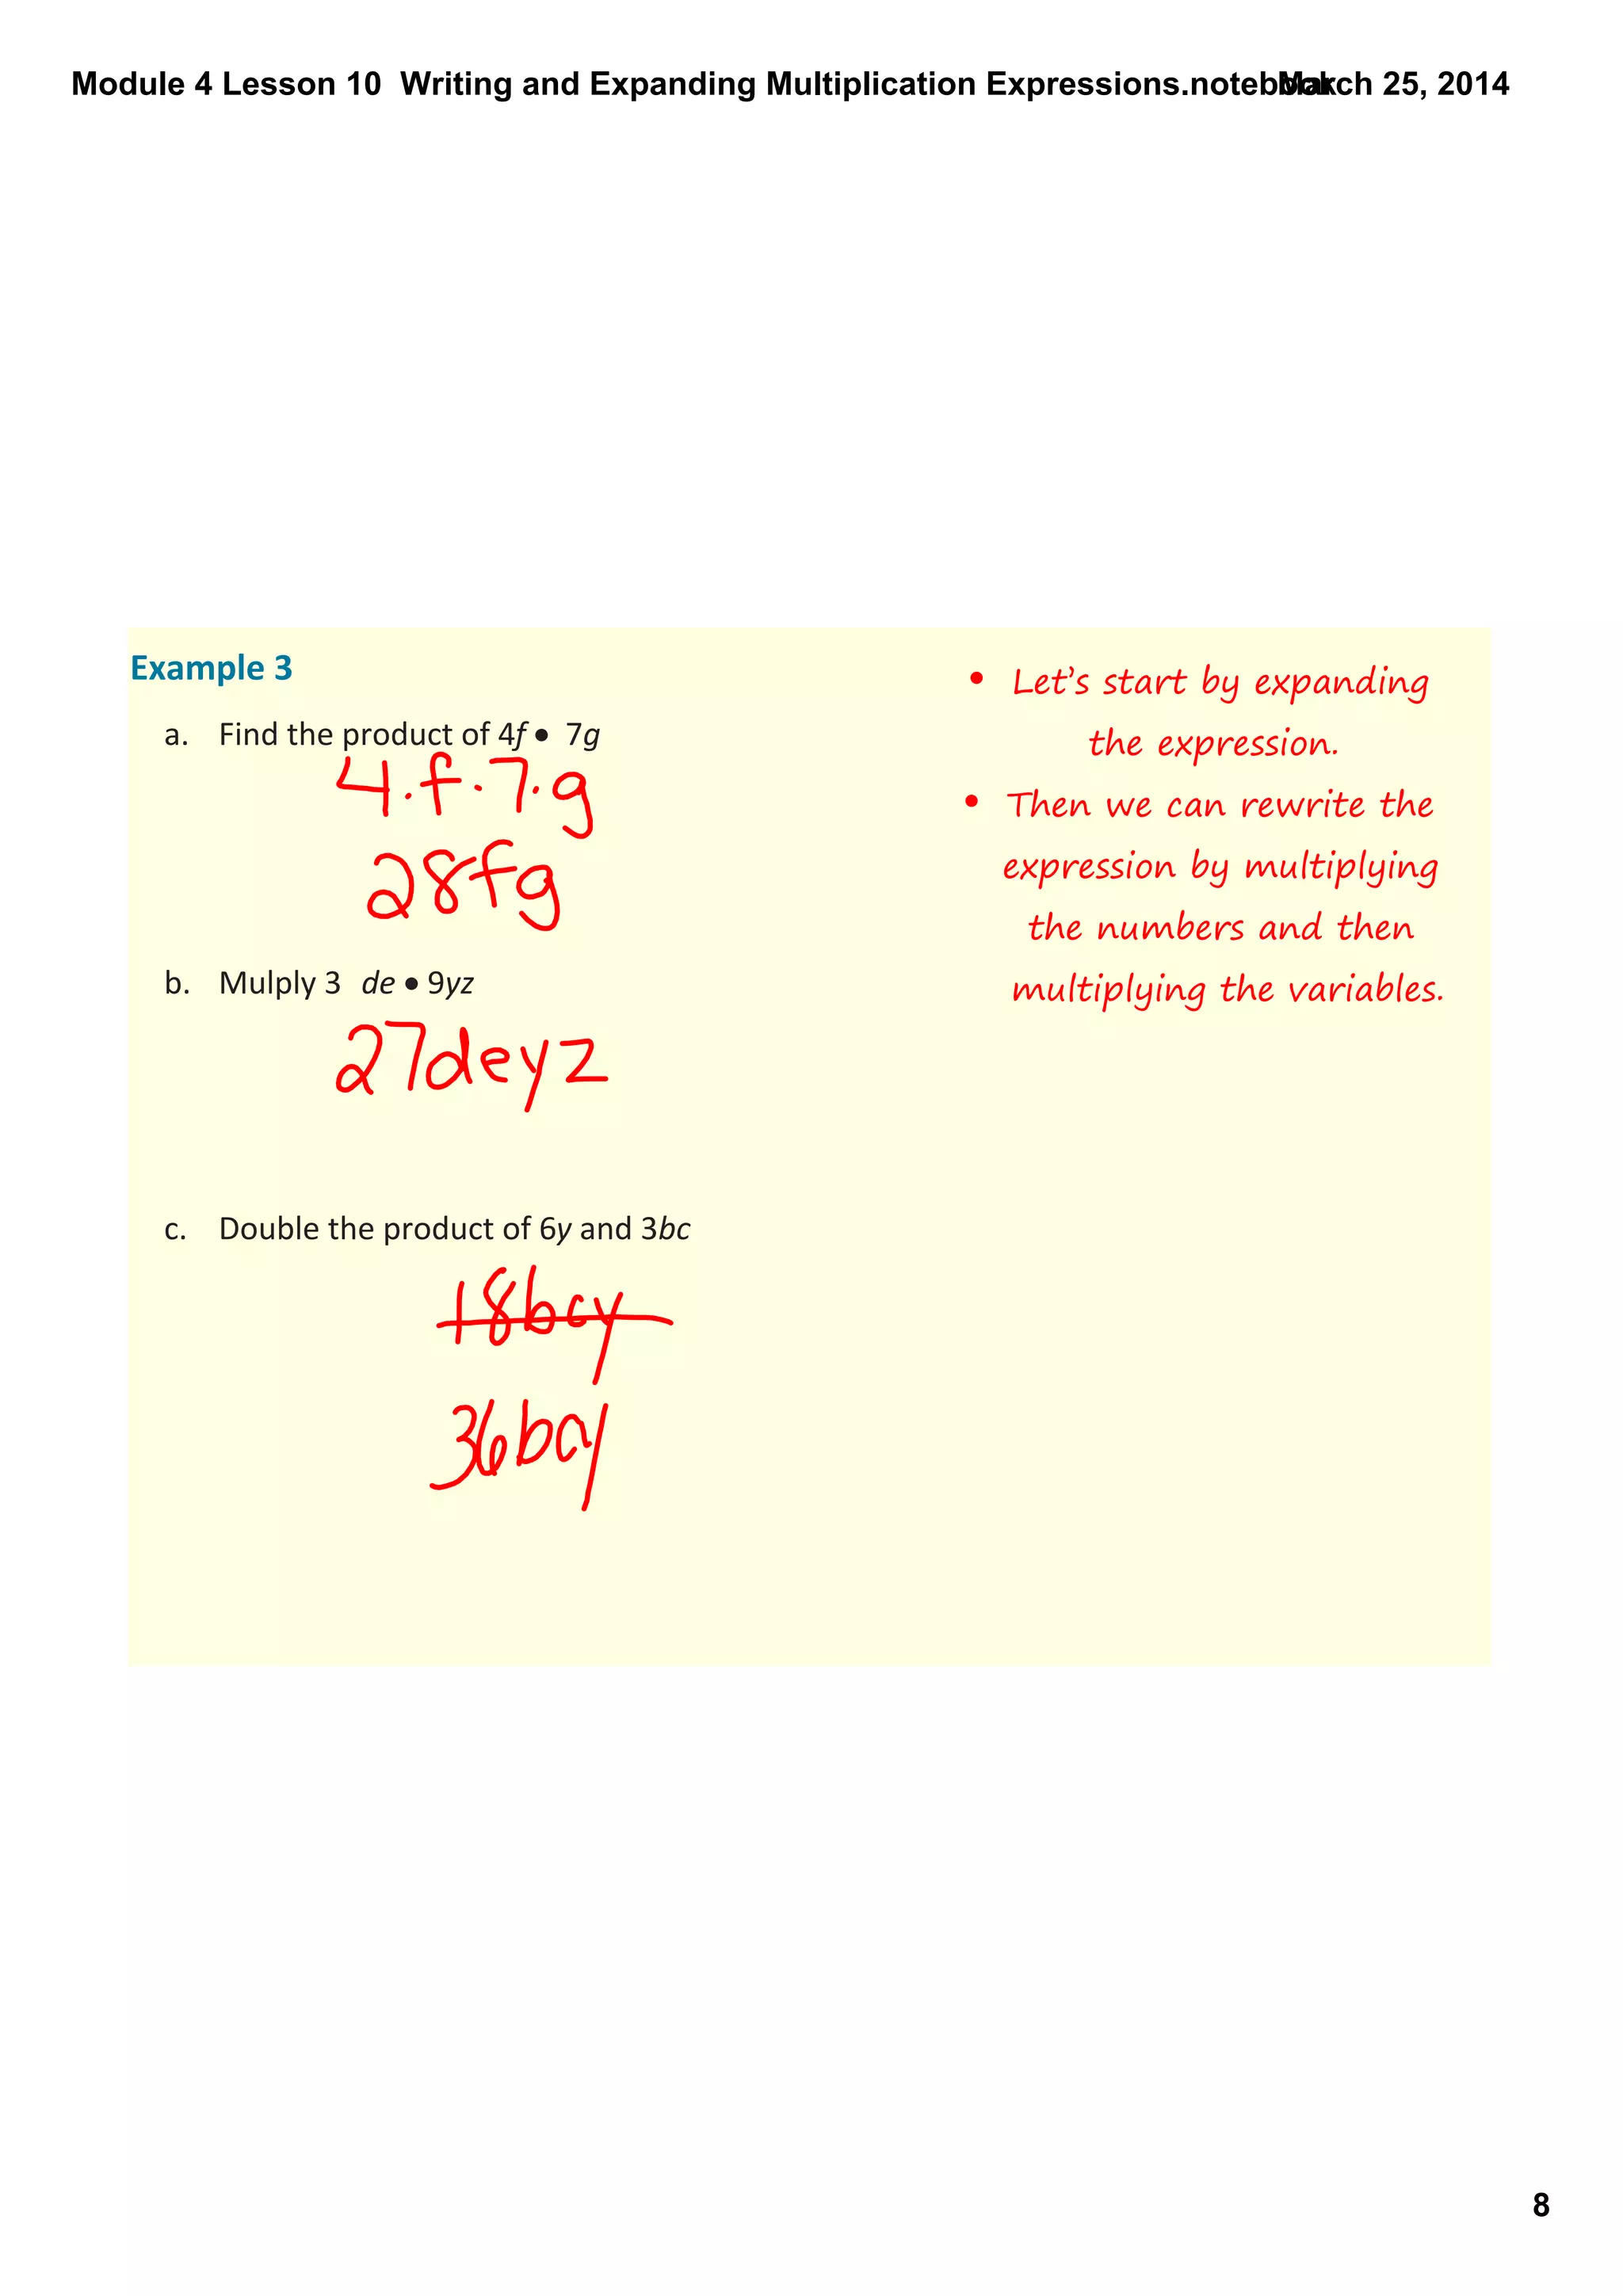 Module 4 Lesson 10  Writing and Expanding Multiplication Expressions.notebook
March 25, 2014
Example 3
a. Find the product of 4f • 7g
4·f·7·g
28fg
b. Mulply 3 de • 9yz
27deyz
c. Double the product of 6y and 3bc
18bcy
36bcy
• Let's start by expanding
the expression.
• Then we can rewrite the
expression by multiplying
the numbers and then
multiplying the variables.
8